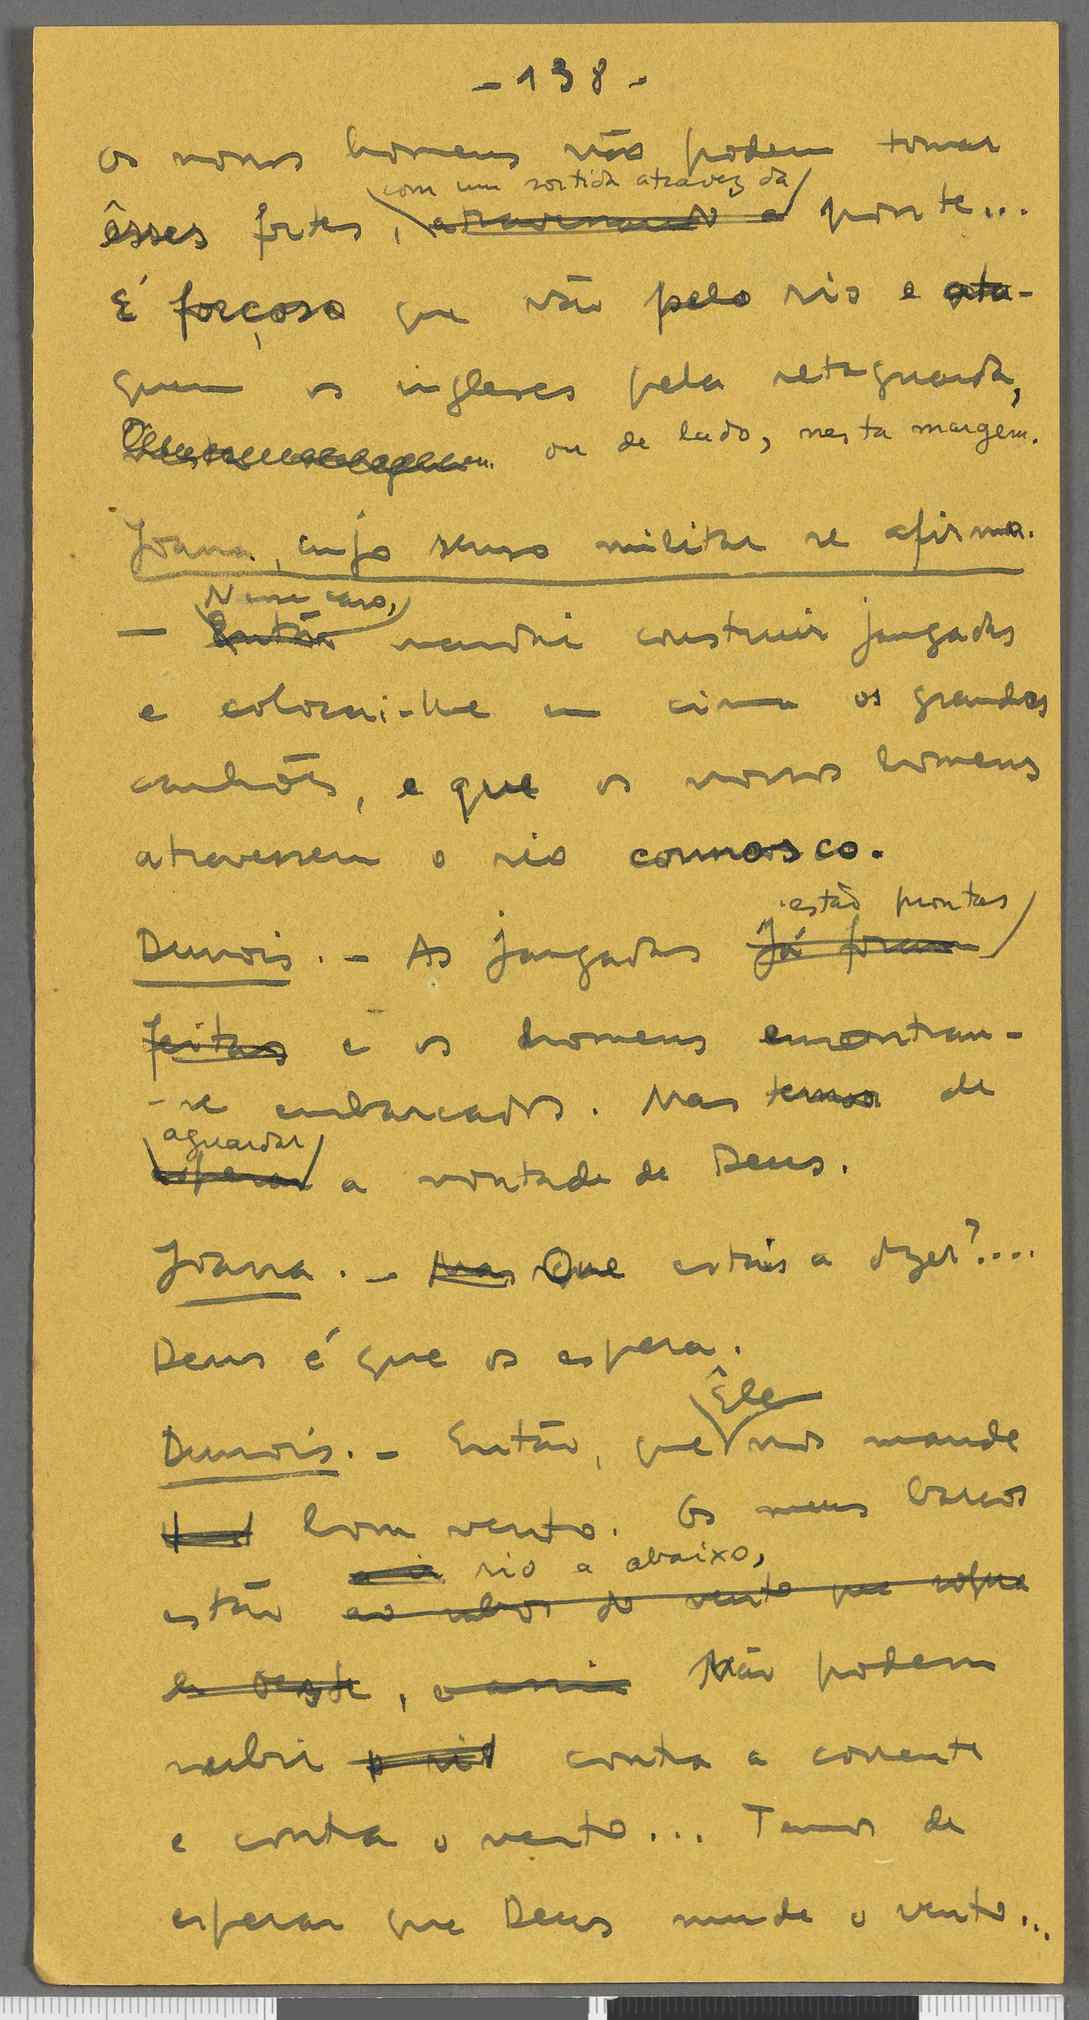 - 138 -
os nossos homens não podem tomar
com um sortida atravez da
êsses fortes, atravessando a ponte...
É forçoso que vão pelo rio e ata-
quem os ingleses pela retaguarda,
ou de lado, nesta margem.
Joana, cujo senso militar se afirma.
Nesse caso,
— Então mandai construir jangadas
e colocai-lhe em cima os grandes
canhões, e que os nossos homens
atravessem o rio connosco.
estão prontas
Dunois. - As jangadas já foram
feitas e os homens encontram-
-se embarcados. Mas temos de
aguardar
esperar a vontade de Deus.
Joana. - Mas Que estais a dizer?....
Deus é que os espera.
Êle
Dunois. - Então, que nos mande
bom vento. Os meus barcos
rio a abaixo,
estão ao sabor do vento que sopra
de oeste, Não podem
subir o rio contra a corrente
e contra o vento... Temos de
esperar que Deus mude o vento...